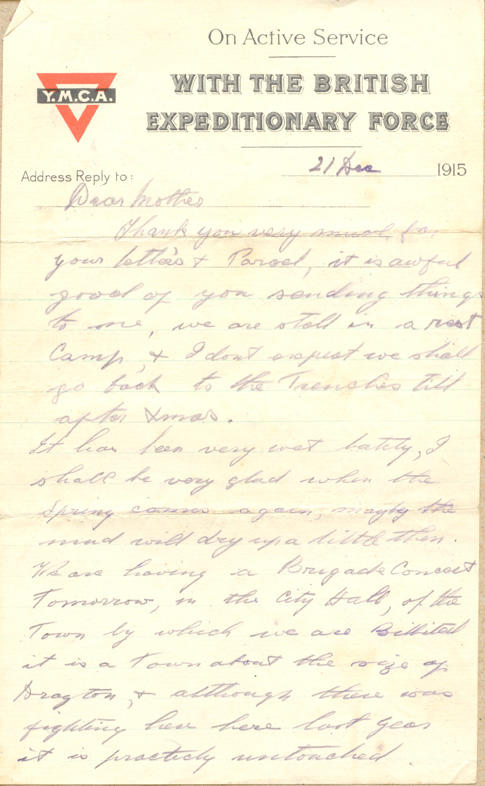 On Active Service
WITH THE BRITISH
EXPEDITIONARY FORCE
Y.M.C.A.
Address Reply to:
21 Dec 1915
Dear Mother
Thank you very much for
your letters & Parcel, it is awful
good of you sending things
to me, we are still in a rest
Camp, & I dont expect we shall
go back to the Trenches till
after Xmas.
It has been very wet lately, I
shall be very glad when the
Spring comes again, maybe the
mud will dry up a little then.
We are having a Brigade Concert
Tomorrow, in the City Hall, of the
Town by which we are Billited
it is a Town about the size of
Drayton, & although there was
fighting here last year
it is practicly untouched.